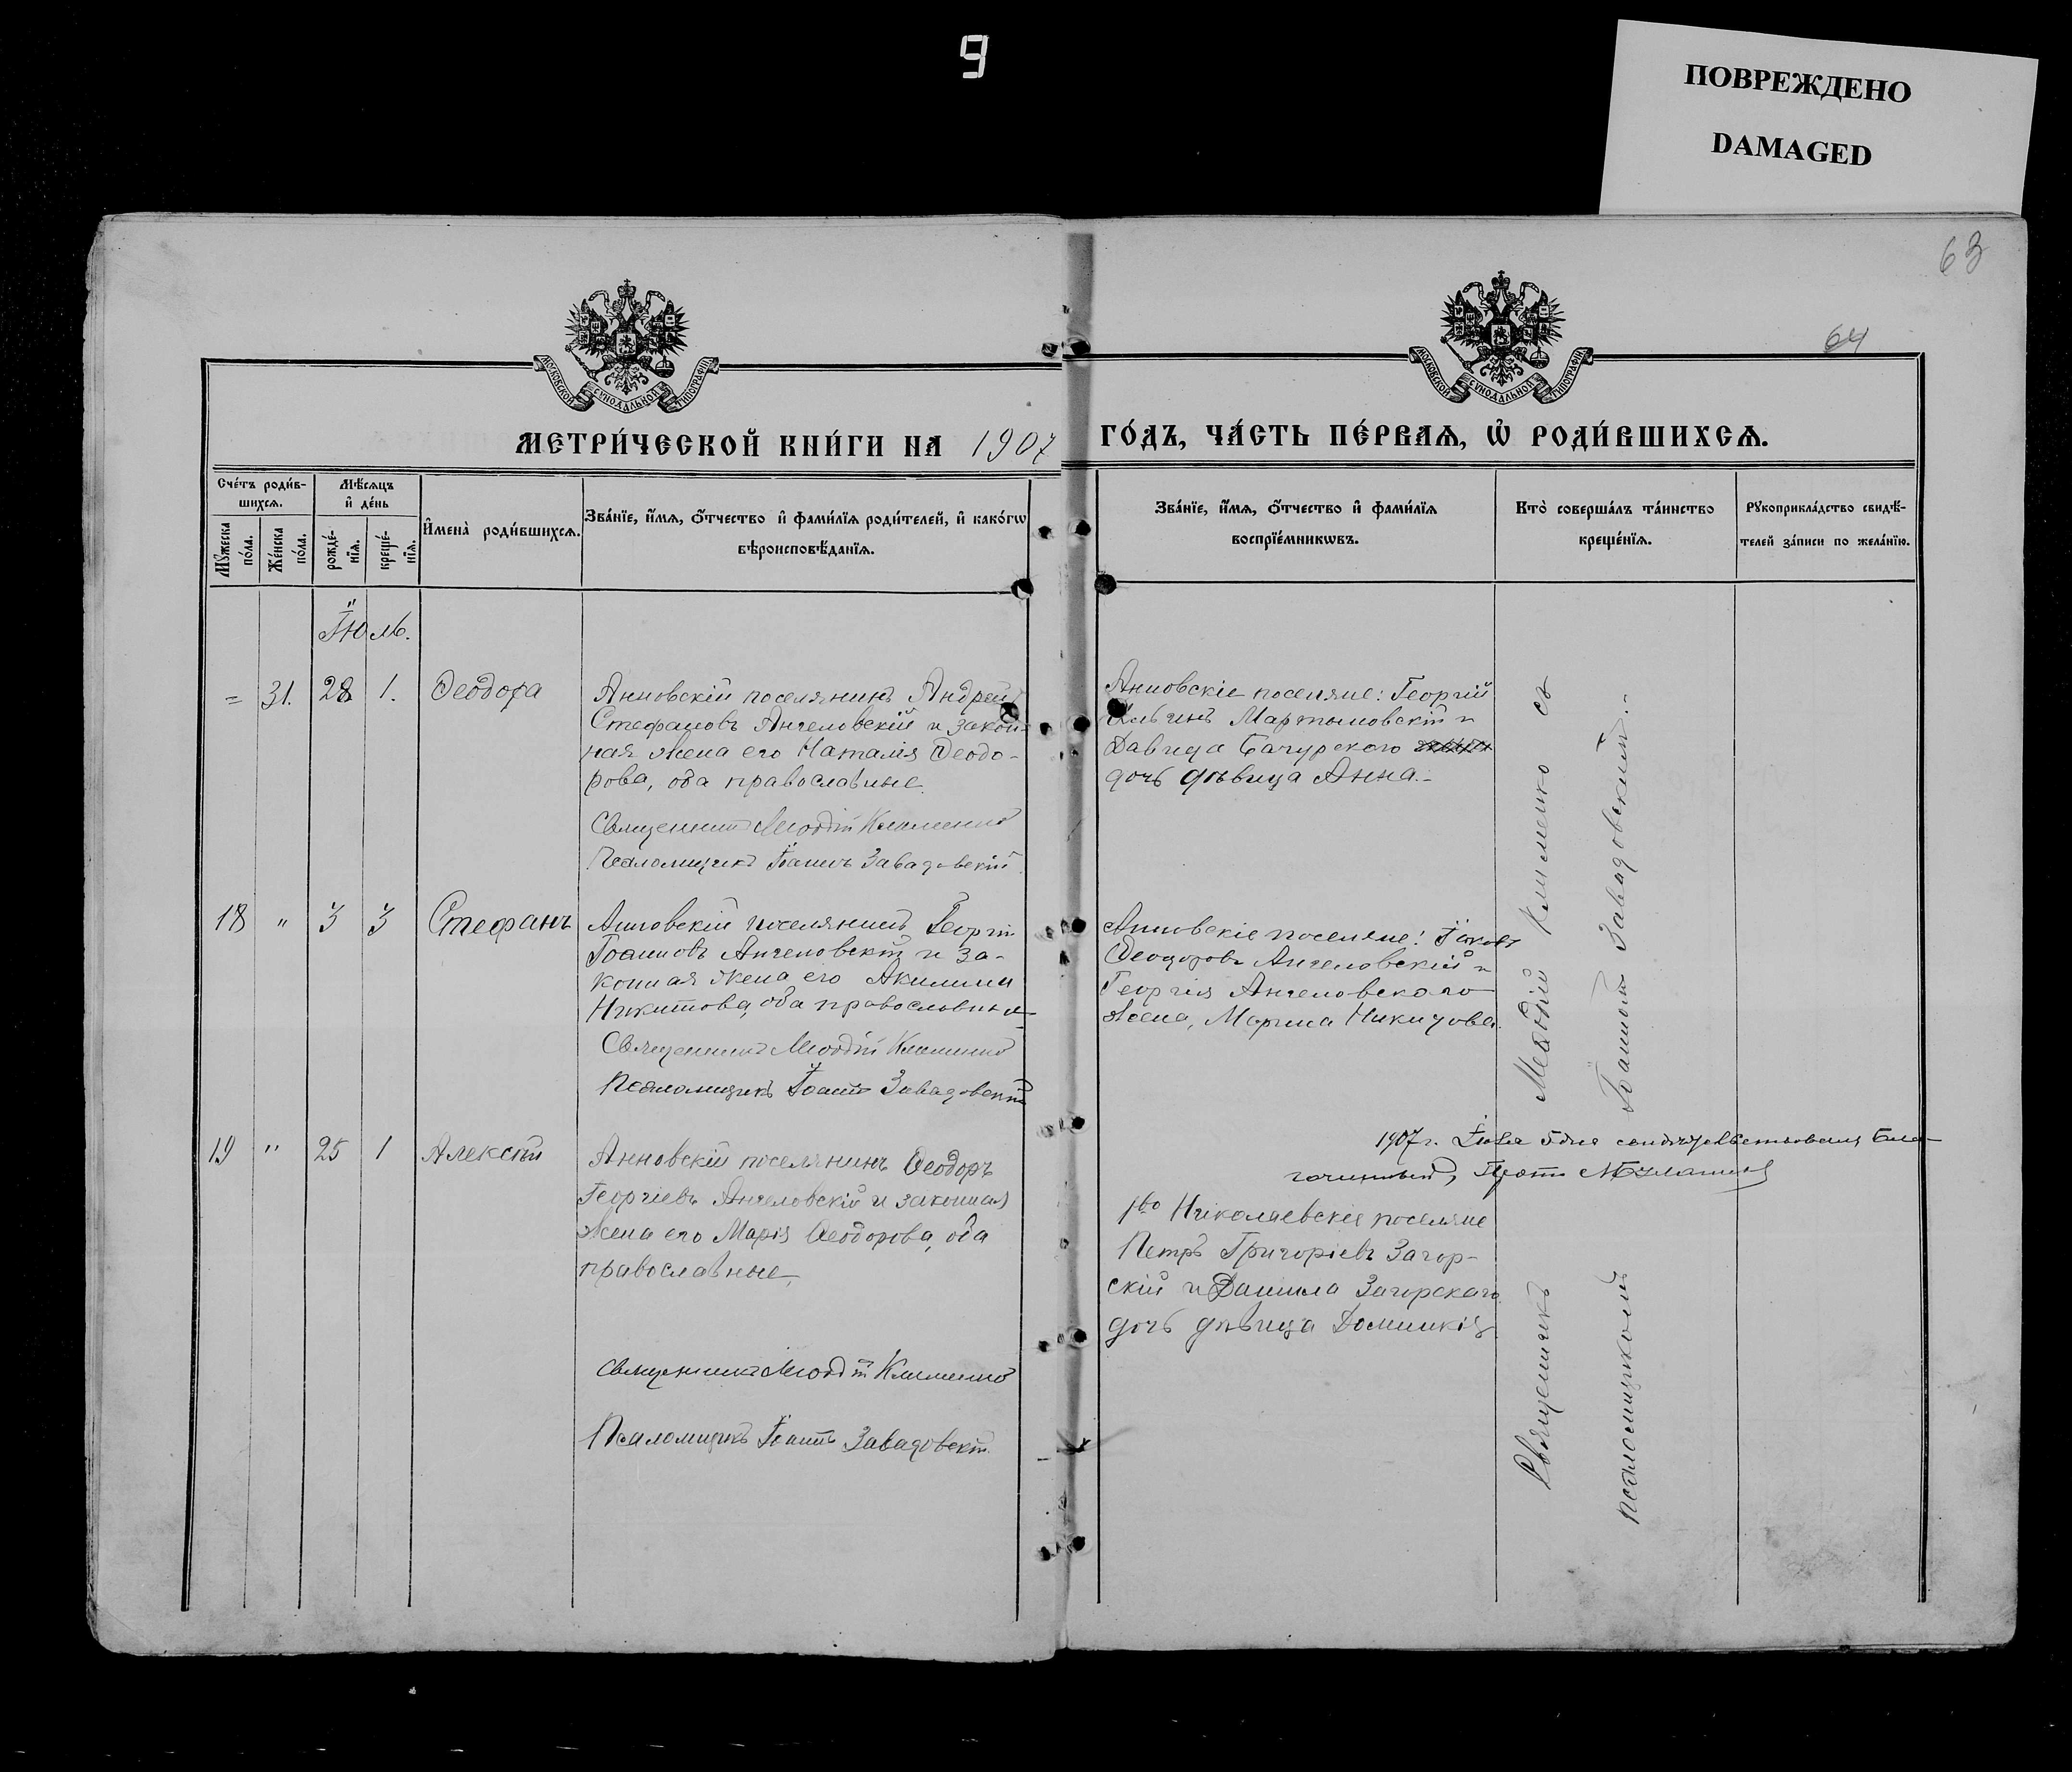 9
ПОВРЕЖДЕНО
DAMAGED
63
64
МОСКОВСКОЙ СѴНОДАЛЬНОЙ ТИПОГРАФІИ
МОСКОВСКОЙ СѴНОДАЛЬНОЙ ТИПОГРАФІИ
МЕТРИ́ЧЕСКОЙ КНИ́ГИ НА 1907 ГО́ДЪ, ЧА́СТЬ ПЕ́РВАѦ, Ѡ҆ РОДИ́ВШИХСѦ.
Сче́тъ роди́в-
шихсѧ.
Мꙋ́жеска по́ла.
Же́нска по́ла.
Мѣ́сѧцъ
и҆ де́нь
рожде́-нїѧ.
креще́-нїѧ.
И҆мена̀ роди́вшихсѧ.
Зва́нїе, и҆́мѧ, ѻ҆́тчество и҆ фами́лїѧ роди́телей, и҆ како́гѡ
вѣроисповѣ́данїѧ.
Зва́нїе, и҆́мѧ, ѻ҆́тчество и҆ фами́лїѧ
воспрїе́мникѡвъ.
Кто̀ соверша́лъ та́инство
креще́нїѧ.
Рꙋкоприкла́дство свидѣ́-
телей за́писи по жела́нїю.
Іюль.
= 31. 28 1. Ѳеодора
Анновскій поселянинъ Андрей
Стефановъ Ангеловскій и закон-
ная жена его Наталія Ѳеодо-
рова, оба православные.
Священникъ Меѳодій Клименко
Псаломщикъ Іоаннъ Завадовскій
Анновскіе поселяне: Георгій
Ильинъ Мартыновскій и
Давида Бачурского
дочь дѣвица Анна.-
18 " 3 3 Стефанъ
Анновскій поселянинъ Георгій
Іоанновъ Ангеловскій и за-
конная жена его Акилина
Никитова, оба православные
Священникъ Меѳодій Клименко
Псаломщикъ Іоаннъ Завадовскій
Анновскіе поселяне: Іаковъ
Ѳеодоровъ Ангеловскій и
Георгія Ангеловского
жена, Марина Никитова.
19 " 25 1 Алексѣй
Анновскій поселянинъ Ѳеодоръ
Георгіевъ Ангеловскій и законная
жена его Марія Ѳеодорова, оба
православные.
Священникъ Меѳодій Клименко
Псаломщикъ Іоаннъ Завадовскій
1907 г. Іюля 5 дня свидѣтельствовалъ Бла-
гочинный, Прот.
1во Николаевскіе поселяне
Петръ Григоріевъ Загор-
скій и Даніила Загорскаго
дочь дѣвица Домникія
Священникъ Меѳодій Клименко съ
псаломщикомъ Іоанномъ Завадовскимъ.-